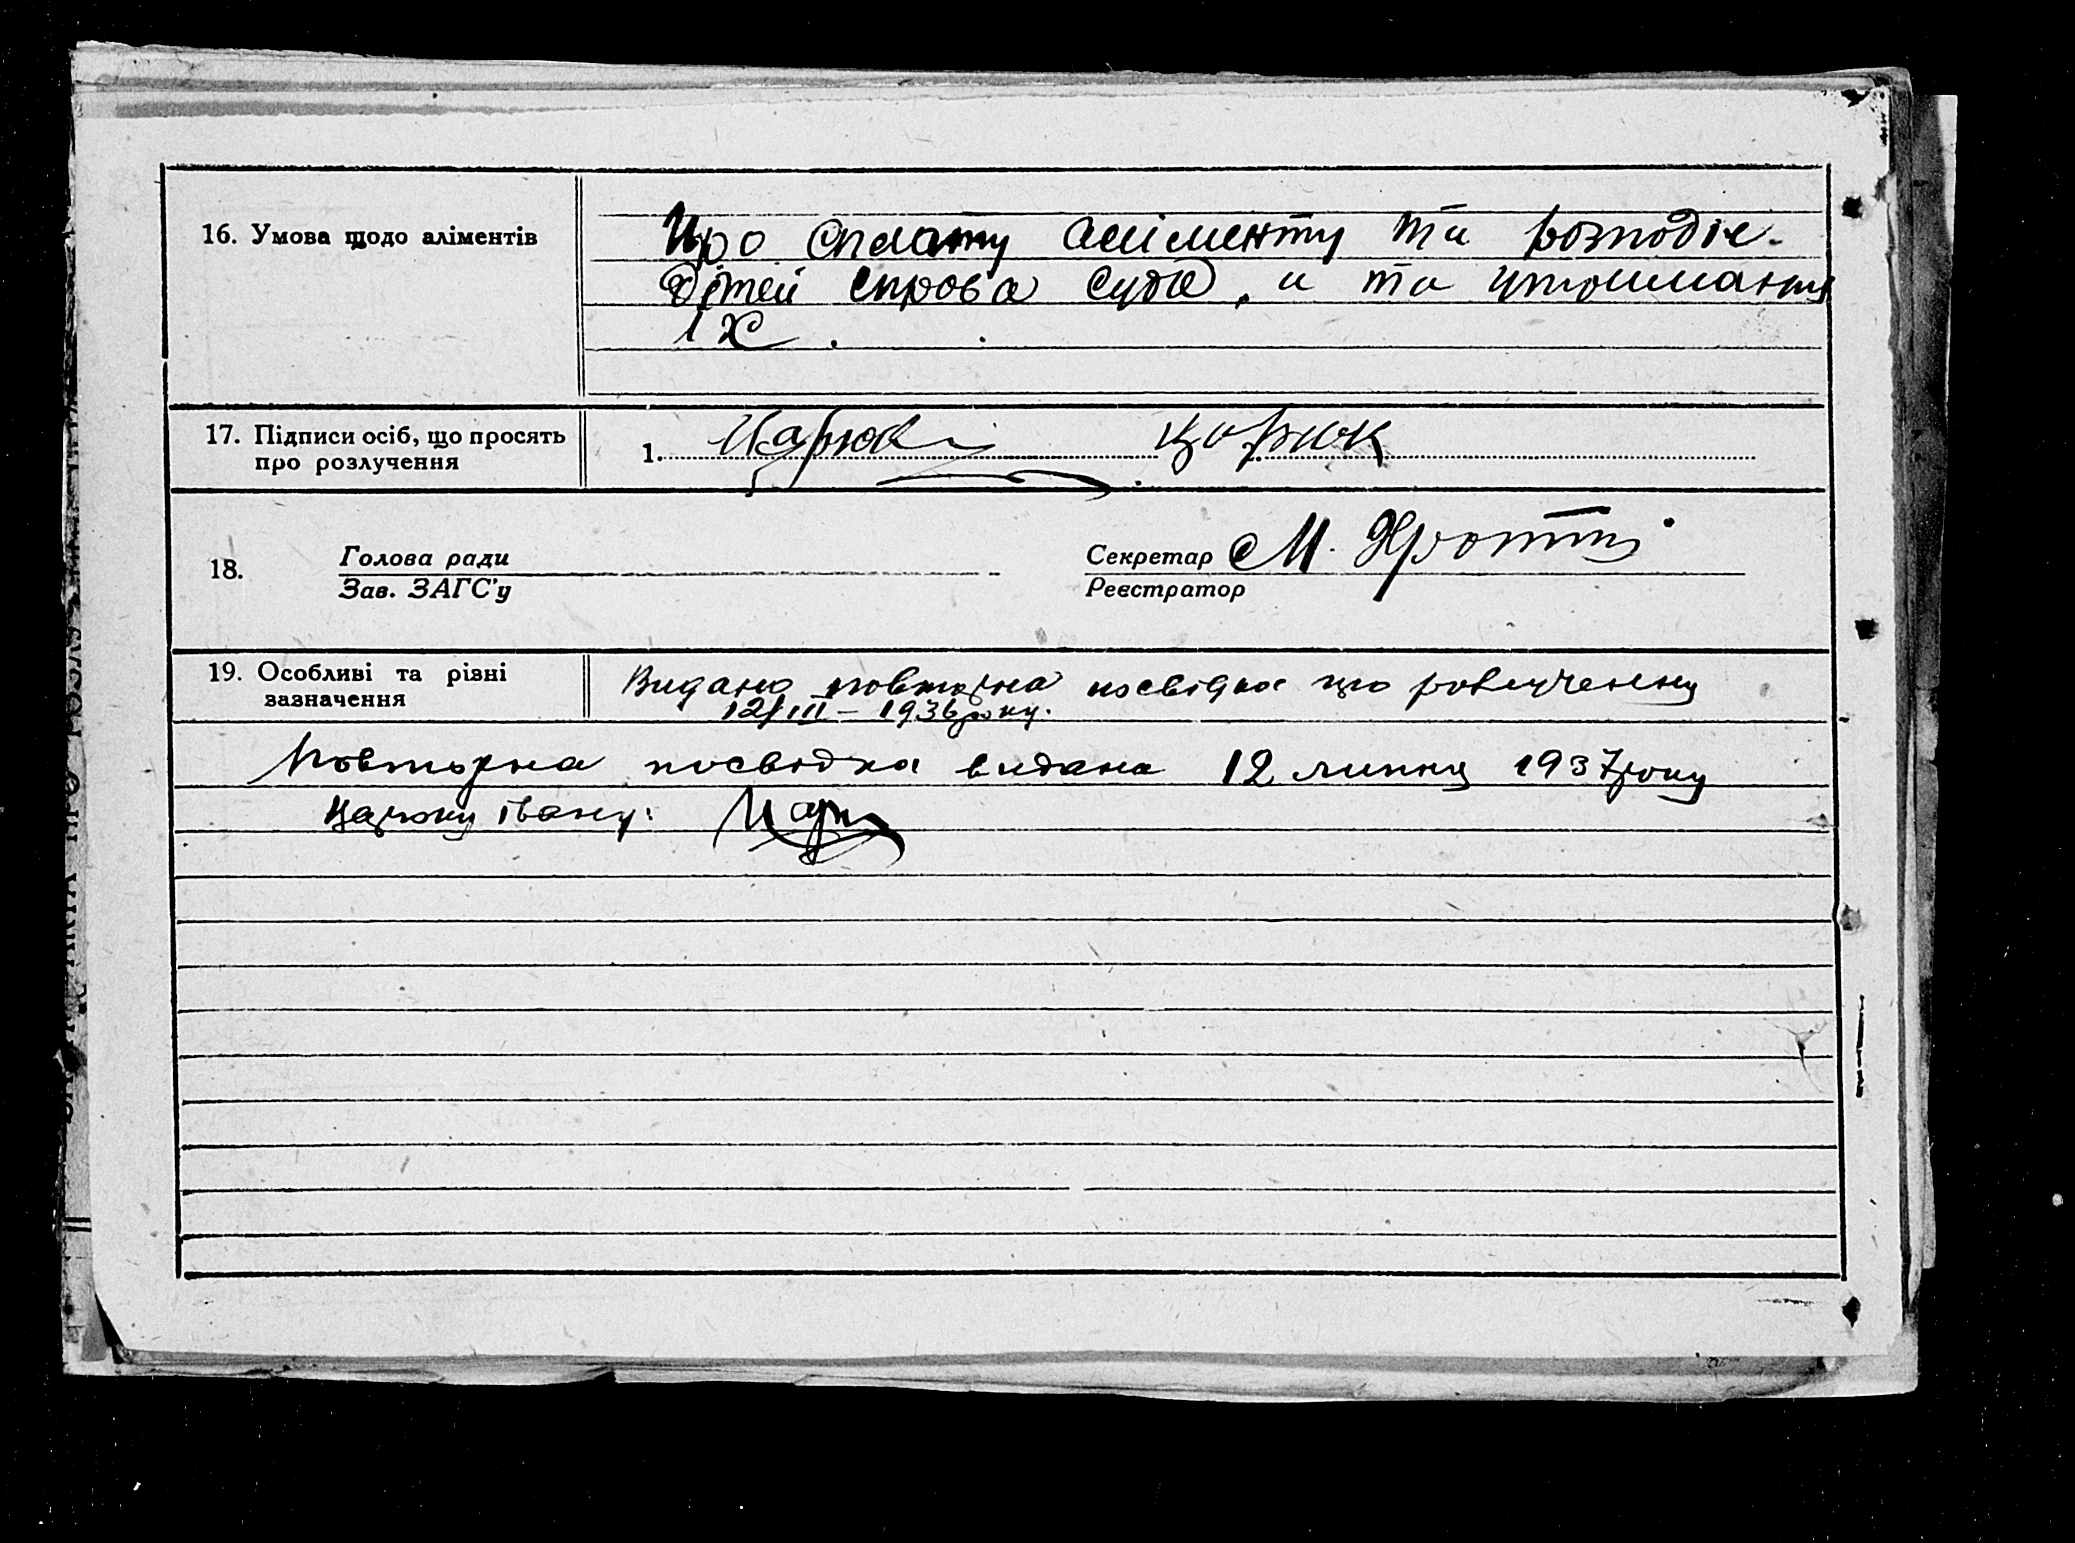 16. Умова щодо аліментів
Про сплату аліменту та розподіл
дітей справа суда, и та утримання
іх.
17. Підписи осіб, що просять
про розлучення
1. Царюк Царюк
18.
Голова ради
Зав. ЗАГС'у
Секретар М.
Реєстратор
19. Особливі та різні
зазначення
Видано повторна посвідка про розлученню
12/III – 1936 року.
Повторна посвідка видана 12 липня 1937 року
Царюку Івану: